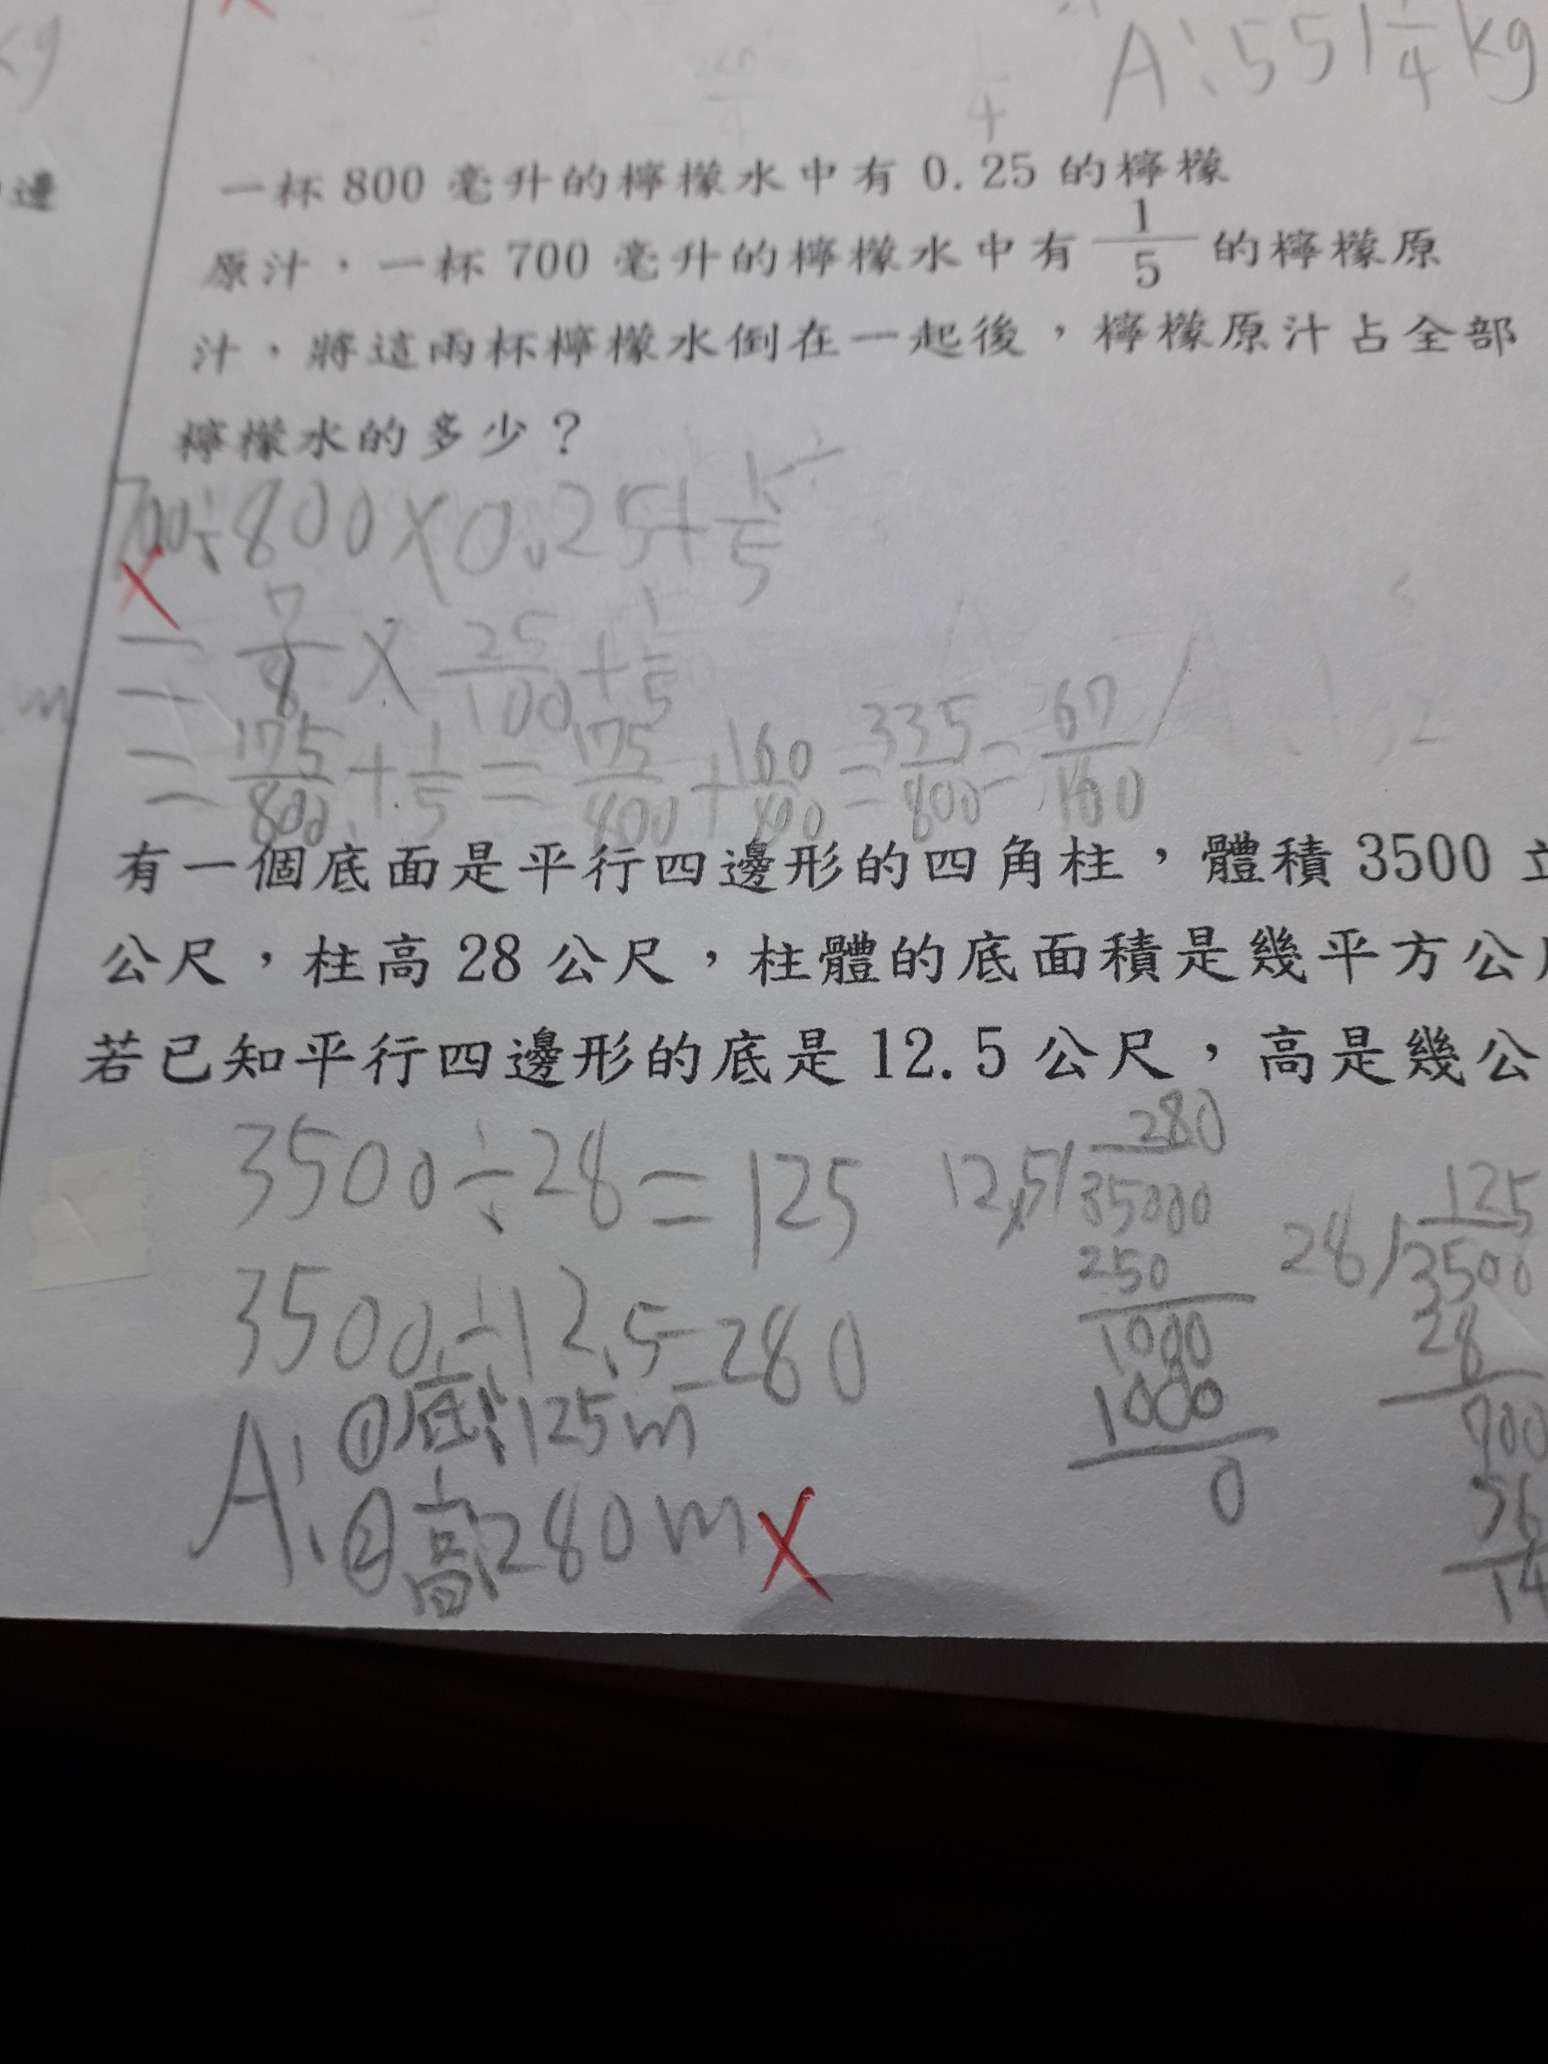 kg
A:551 1/4 kg
邊
一杯 800 毫升的檸檬水中有 0.25 的檸檬
原汁，一杯 700 毫升的檸檬水中有 1/5 的檸檬原
汁，將這兩杯檸檬水倒在一起後，檸檬原汁占全部
檸檬水的多少？
700÷800×0.25+1/5
= 7/8 × 25/100 + 1/5
= 175/800 + 1/5 = 175/800 + 160/800 = 335/800 = 67/160
m
有一個底面是平行四邊形的四角柱，體積 3500 立
公尺，柱高 28 公尺，柱體的底面積是幾平方公
若已知平行四邊形的底是 12.5 公尺，高是幾公
3500÷28=125
3500÷12.5=280
A:①底:125m
②高:280m
280
12.5)35000
250
1000
1000
0
125
28)3500
28
700
56
14